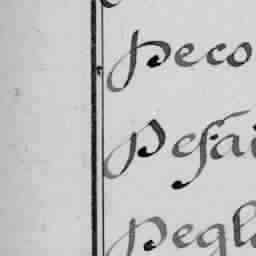 Peco
Pesai
Pegl